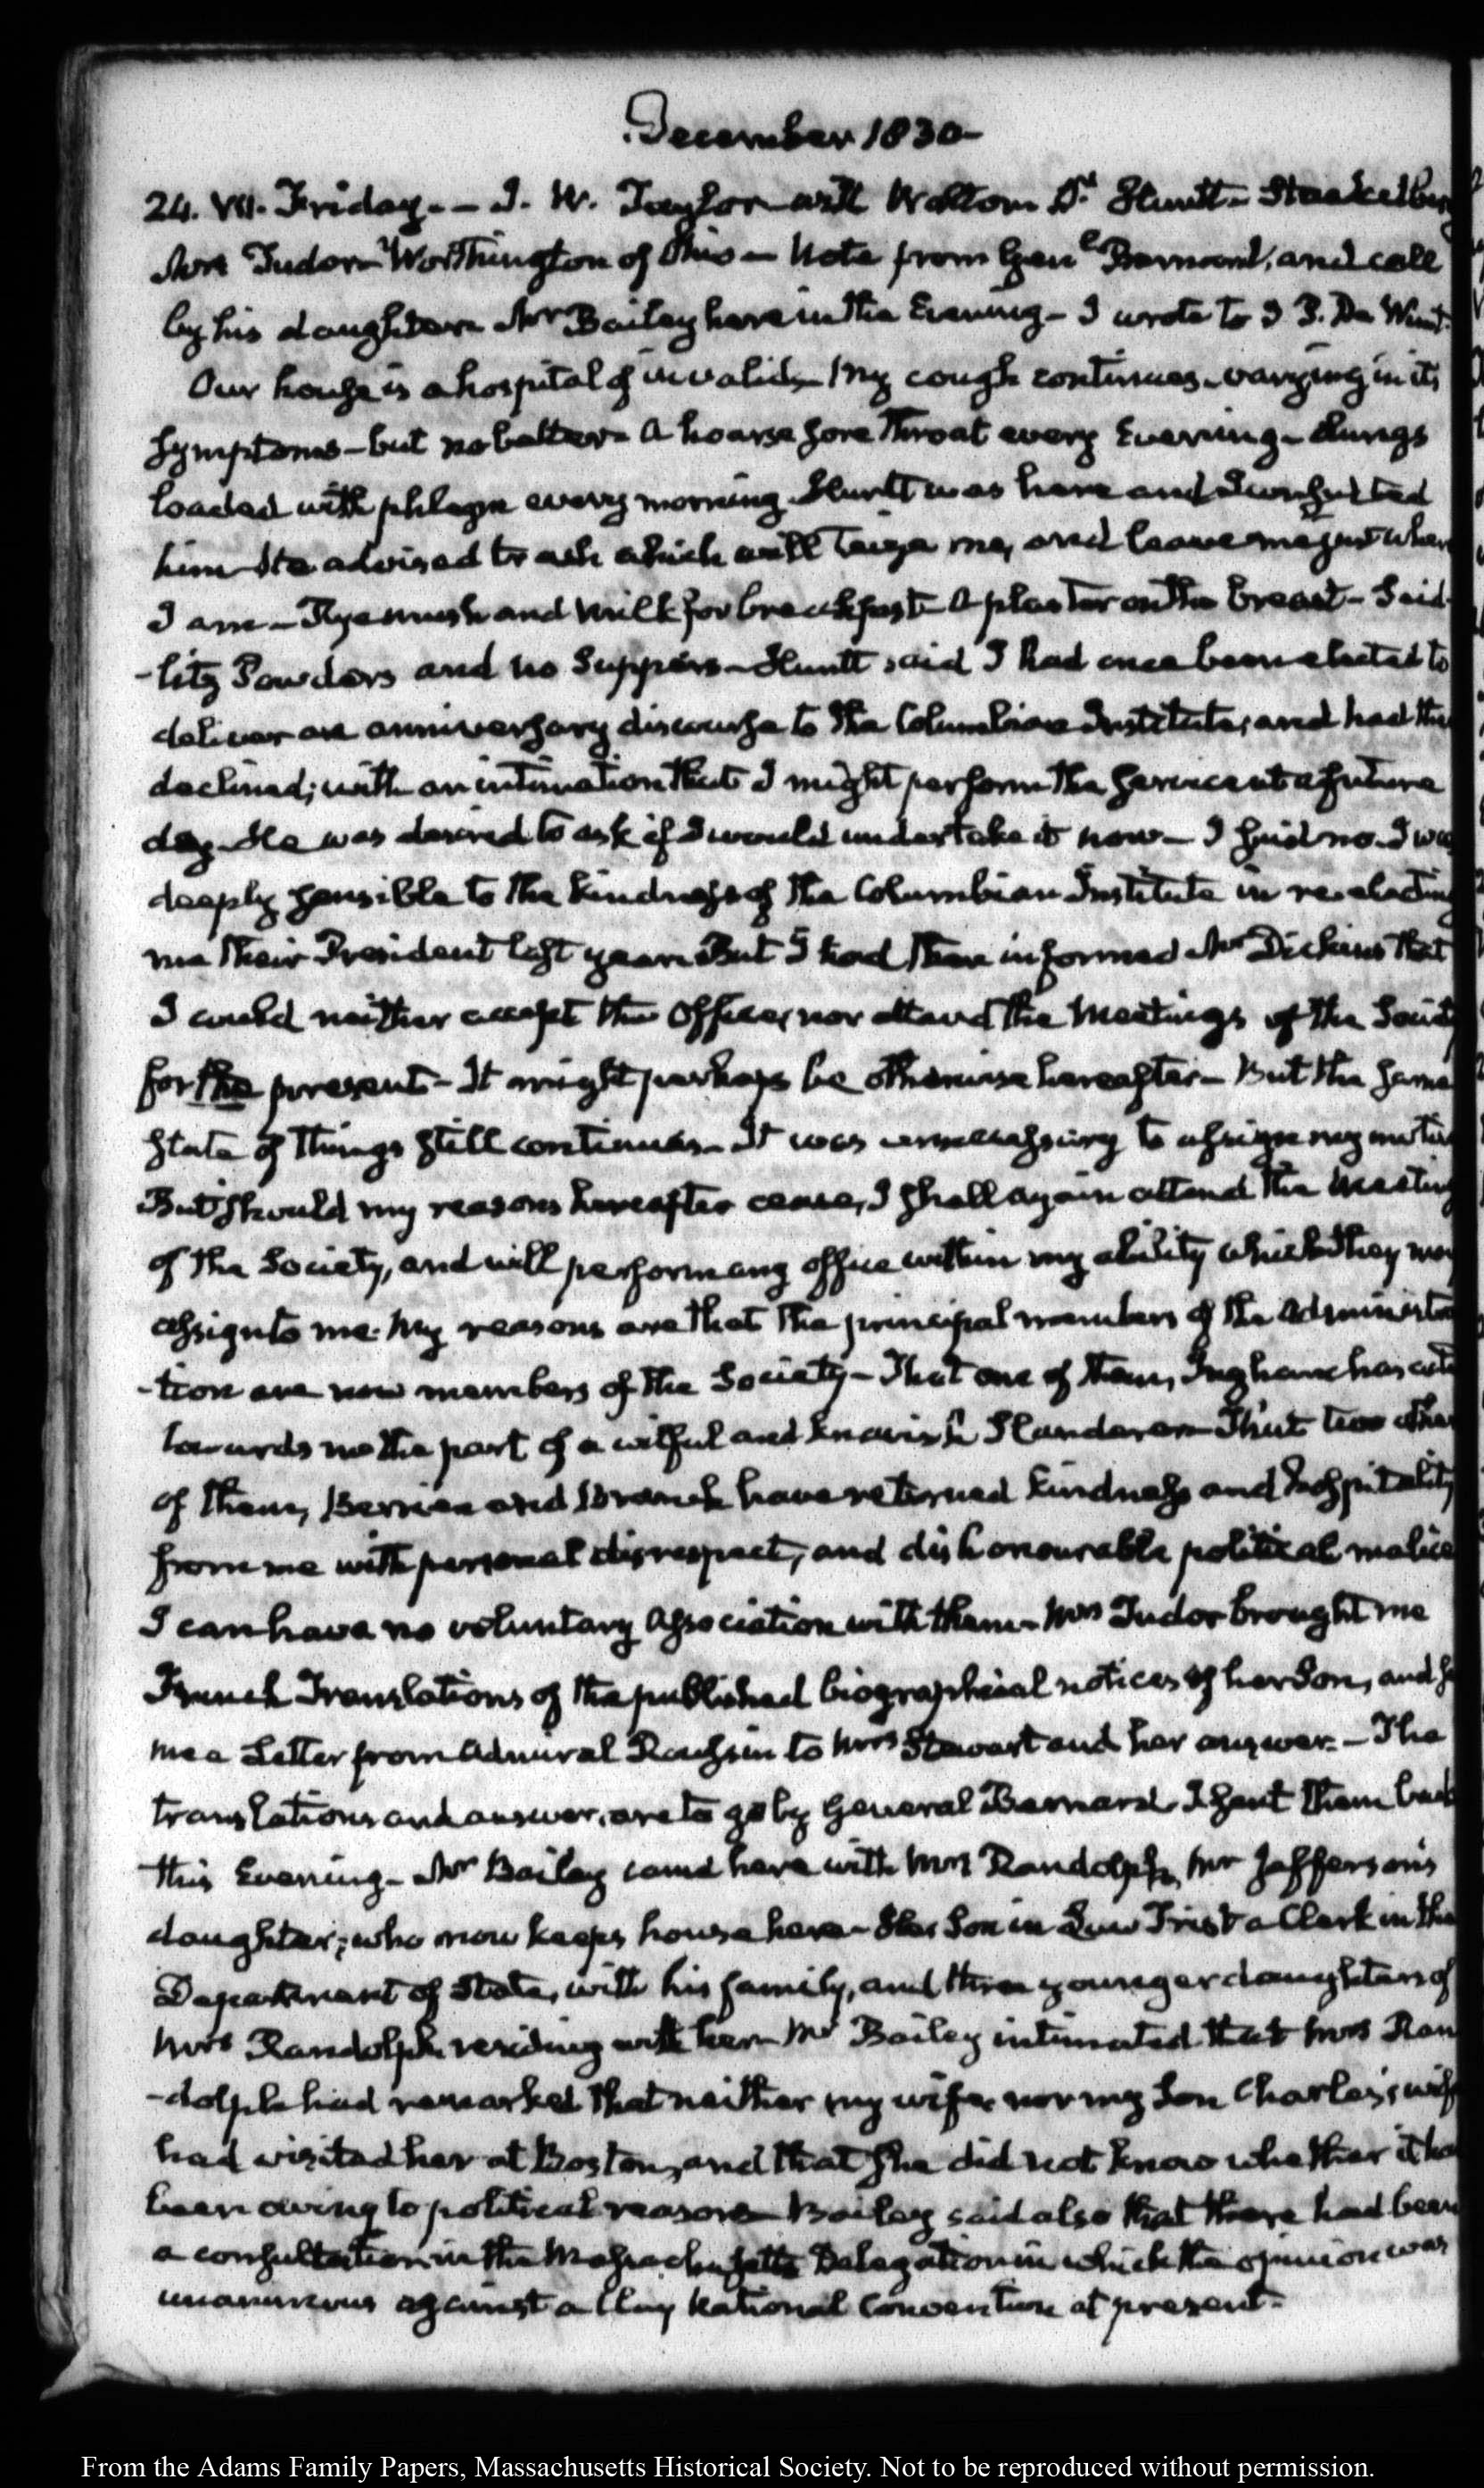 December 1830-
24. VII. Friday. - J. W. Taylor with Watson Dr. Huntt - Stackelberg
Mrs Tudor - Worthington of Ohio - Note from Genl. Bernard, and call
by his daughter - Mr Bailey here in the Evening - I wrote to J P. De Wint.
Our house is a hospital of invalids - My cough continues - varying in its
symptoms - but no better - A hoarse sore throat every Evening - Lungs
loaded with phlegm every morning. Huntt was here and I consulted
him - He advised to ask which will teize me, and leave me just where
I am - Rye mush and milk for breakfast - A plaster on the breast - Seid-
-litz Powders and no Suppers - Huntt said I had once been elected to
deliver an anniversary discourse to the Columbian Institute, and had then
declined; with an intimation that I might perform the service at a future
day - He was desired to ask if I would undertake it now - I said no. I was
deeply sensible to the kindness of the Columbian Institute in re-electing
me their President last year - But I had then informed Mr Dickins that
I could neither accept the Office, nor attend the Meetings of the Society
for the present - It might perhaps be otherwise hereafter - But the same
state of things still continues - It was unnecessary to assign my motives
But should my reasons hereafter cease, I shall again attend the Meetings
of the Society, and will perform any office within my ability which they may
assign to me. My reasons are that the principal members of the Administra
-tion are now members of the Society - That one of them, Ingham has acted
towards me the part of a wilful and knavish Slanderer - That two others
of them, Berrien and Branch have returned kindness and hospitality
from me with personal disrespect, and dishonourable political malice
I can have no voluntary Association with them - Mrs Tudor brought me
French Translations of the published biographical notices of her Son, and
me a Letter from Admiral Roussin to Mrs Stewart and her answer. - The
translations and answer, are to go by General Bernard - I sent them back
this Evening - Mr Bailey came here with Mrs Randolph, Mr Jefferson's
daughter; who now keeps house here - Her Son in Law Trist a Clerk in the
Department of State, with his family, and three younger daughters of
Mrs Randolph residing with her - Mr Bailey intimated that Mrs Ran
-dolph had remarked that neither my wife, nor my Son Charles's wife
had visited her at Boston, and that she did not know whether it had
been owing to political reasons - Bailey said also that there had been
a consultation in the Massachusetts Delegation in which the opinion was
unanimous against a Clay National Convention at present -
From the Adams Family Papers, Massachusetts Historical Society. Not to be reproduced without permission.